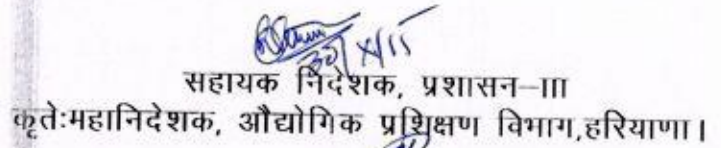 सहायक निदेशक, प्रशासन–III
कृतेःमहानिदेशक, औद्योगिक प्रशिक्षण विभाग,हरियाणा।